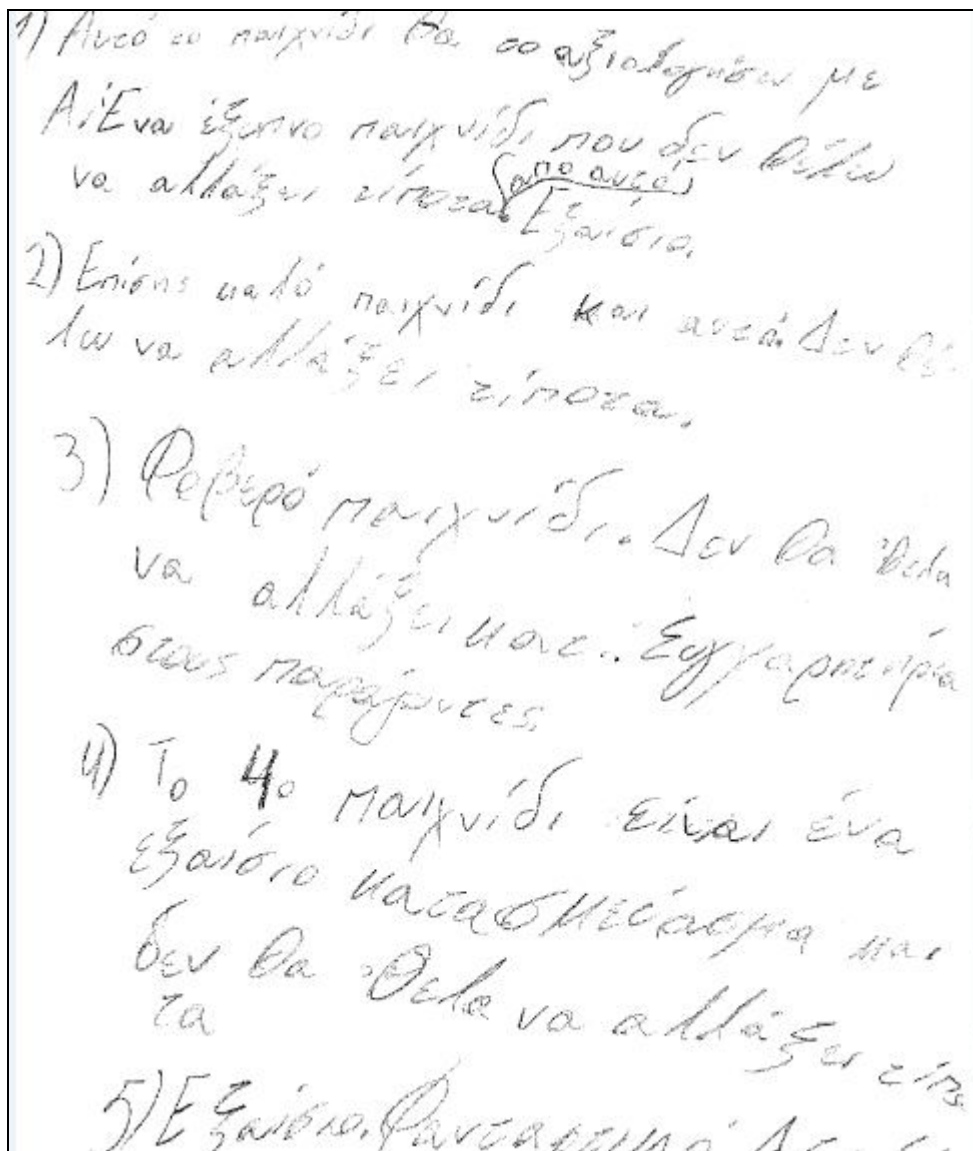 1) Αυτό το παιχνίδι θα το αξιολογήσω με
Α. Ένα έξυπνο παιχνίδι που δεν θέλω
να αλλάξει τίποτα (από αυτό). Εξαίσιο.
2) Επίσης καλό παιχνίδι και αυτό. Δεν θέ-
λω να αλλάξει τίποτα.
3) Φοβερό παιχνίδι. Δεν θα ήθελα
να αλλάξει κατι. Συγχαρητήρια
στους παράγωντες.
4) Το 4ο παιχνίδι είναι ένα
εξαίσιο κατασκεύασμα και
δεν θα ήθελα να αλλάξει τίπο
τα
5) Εξαίσιο. Φανταστικό